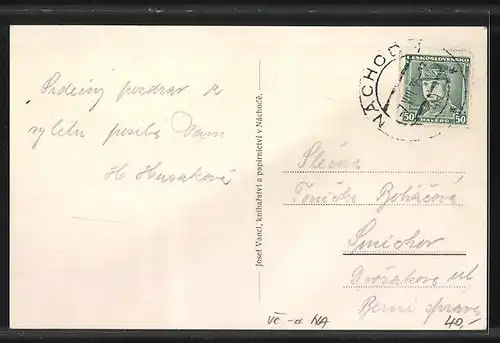 Srdečný pozdrav z
výletu posílá Vám
H Husáková
Josef Vancl, knihařství a papírnictví v Náchodě.
NÁCHOD
ČESKOSLOVENSKO
50 HALÉŘŮ 50
Slečna
Tonička Boháčová
Smíchov
Dvořákova ul
Berní správa
VČ -a NA
40,-